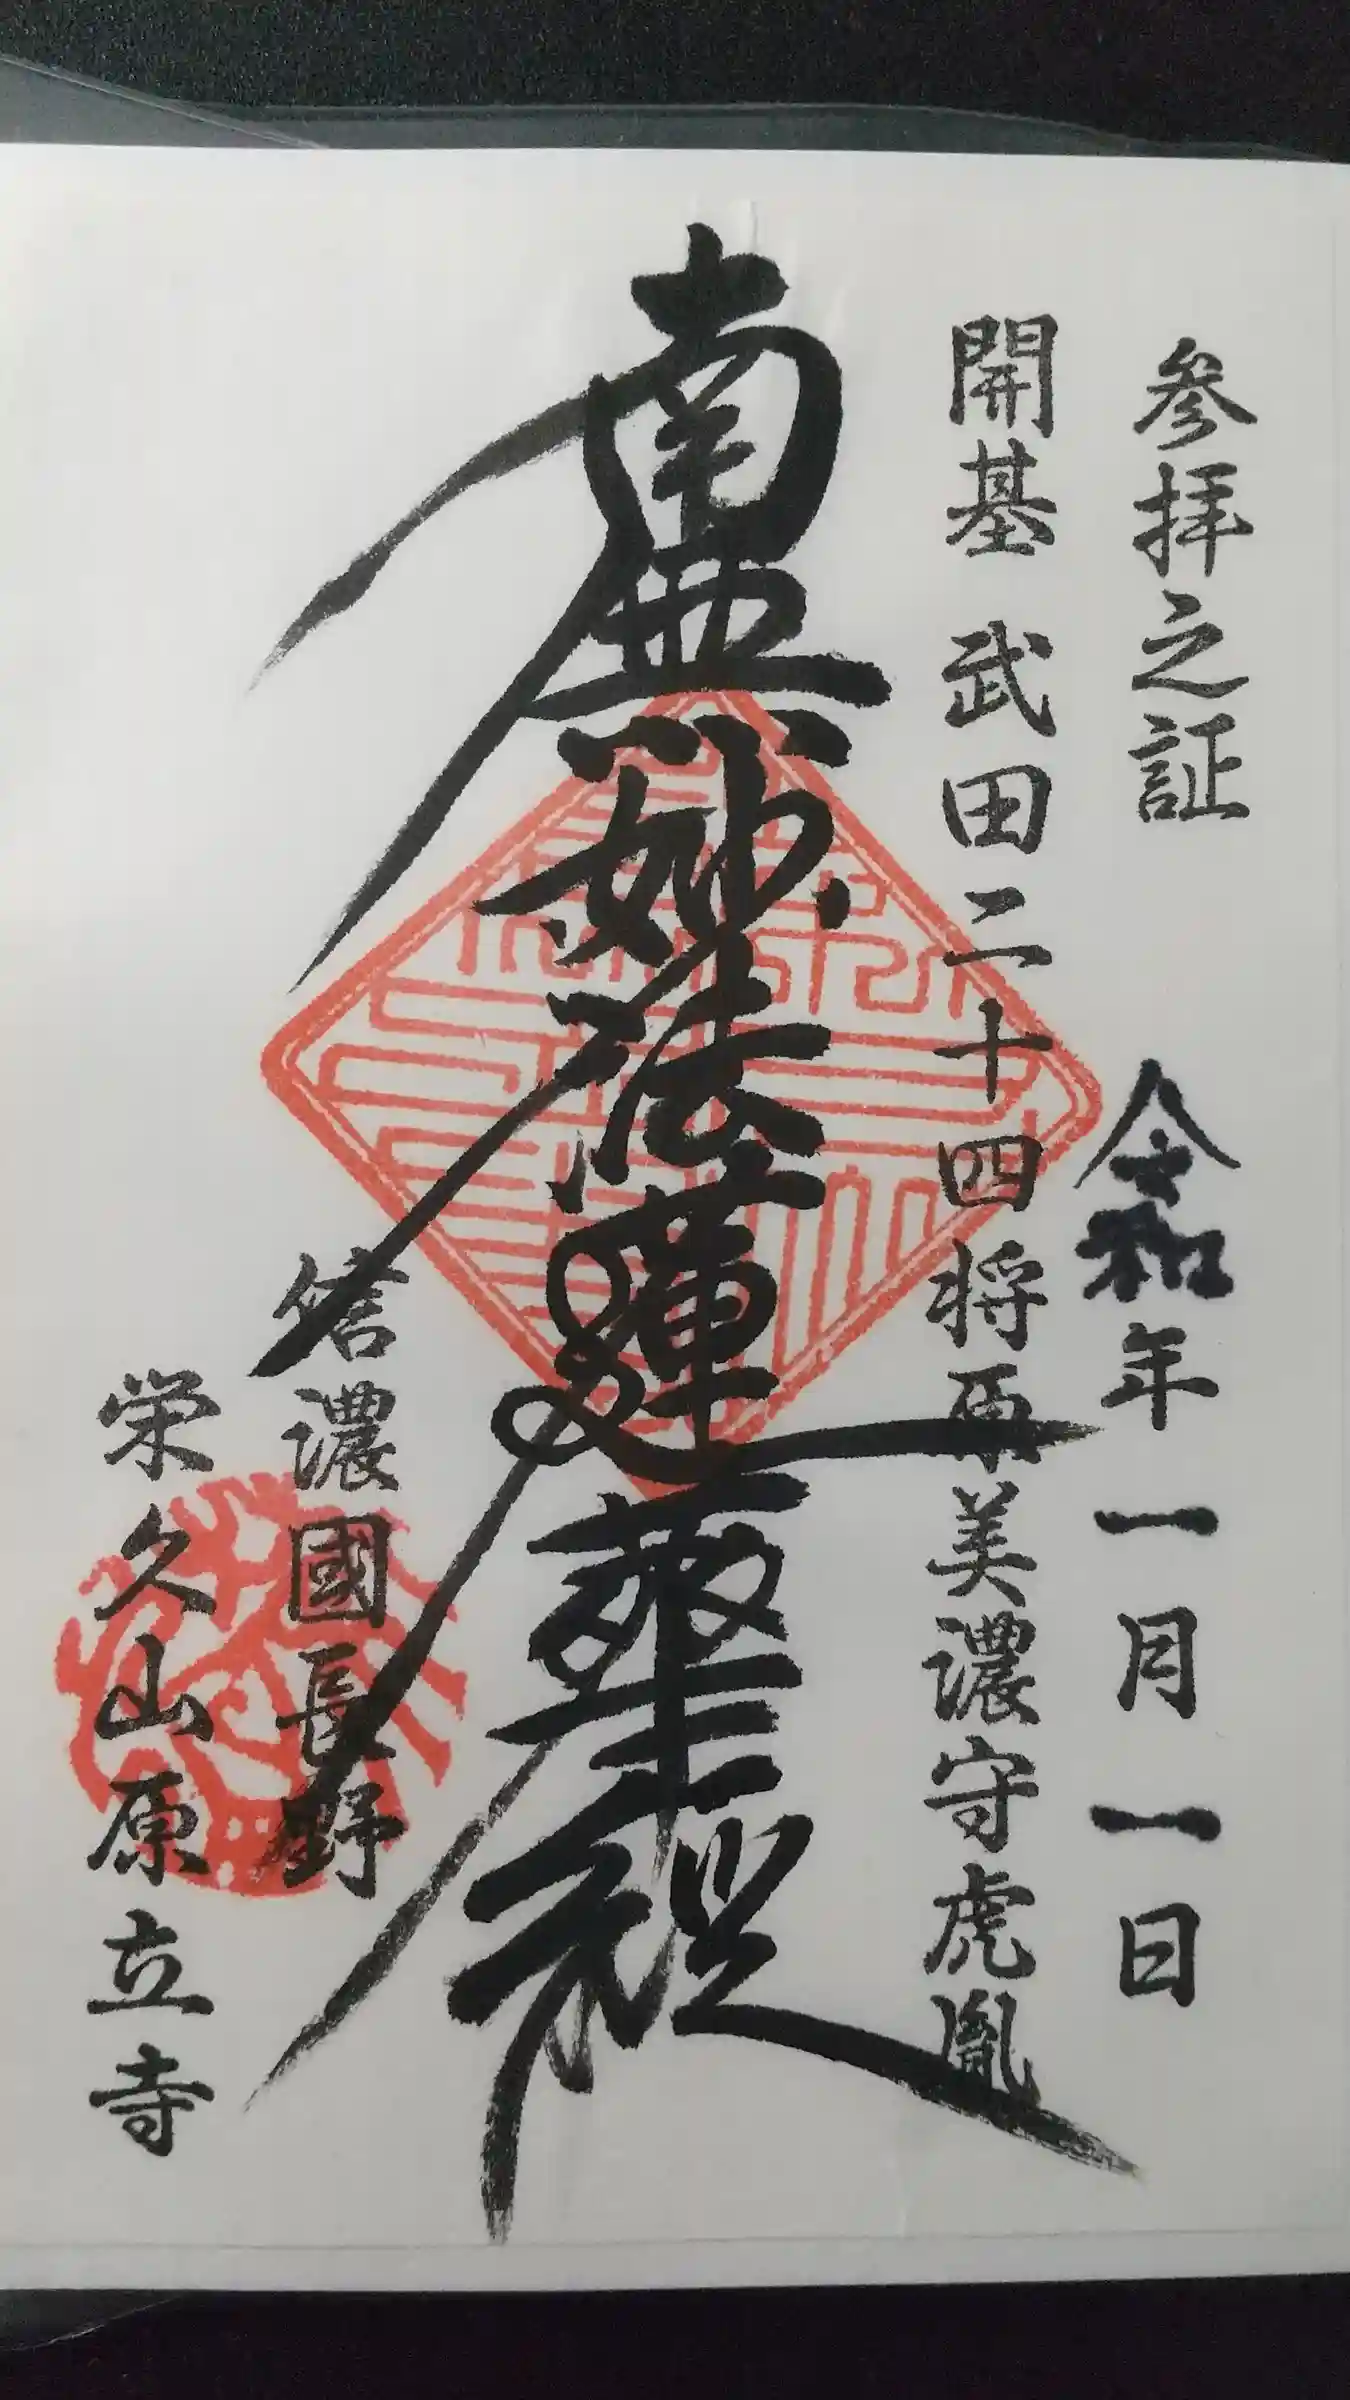 参拝之証　令和年一月一日
開基 武田二十四将原美濃守虎胤
南無妙法蓮華経
信濃國長野
栄久山原立寺